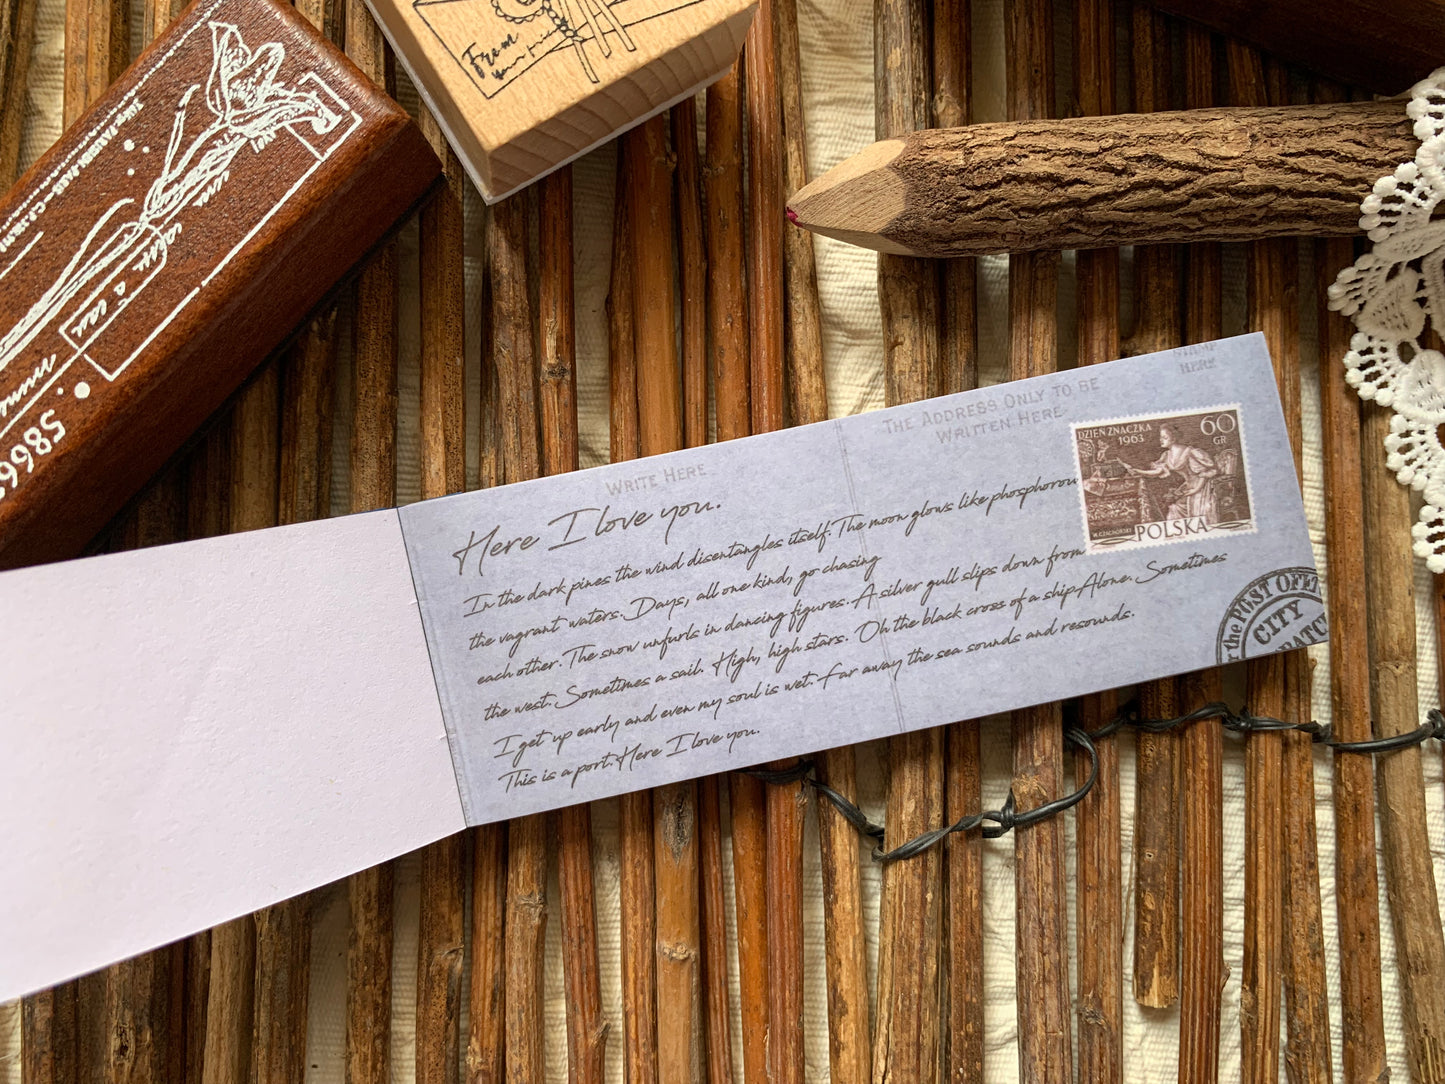 From
58663
WRITE HERE
THE ADDRESS ONLY TO BE
WRITTEN HERE
STAMP
HERE
DZIEŃ ZNACZKA
1963
60
GR
POLSKA
Here I love you.
In the dark pines the wind disentangles itself. The moon glows like phosphorou
the vagrant waters. Days, all one kind, go chasing
each other. The snow unfurls in dancing figures. A silver gull slips down from
the west. Sometimes a sail. High, high stars. Oh the black cross of a ship Alone. Sometimes
I get up early and even my soul is wet. Far away the sea sounds and resounds.
This is a port. Here I love you.
POST OFFI
CITY